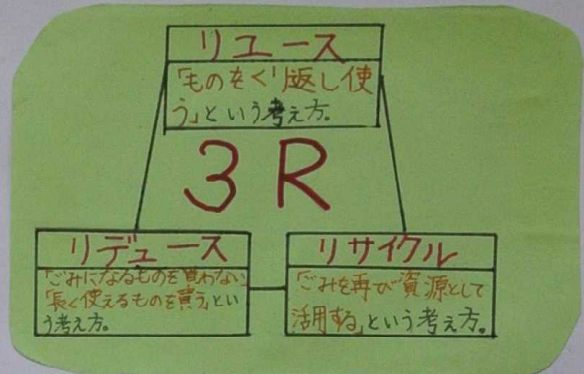 リユース
「ものをくり返し使
う」という考え方。
3R
リデュース
「ごみになるものを買わない」
「長く使えるものを買う」とい
う考え方。
リサイクル
「ごみを再び資源として
活用する」という考え方。